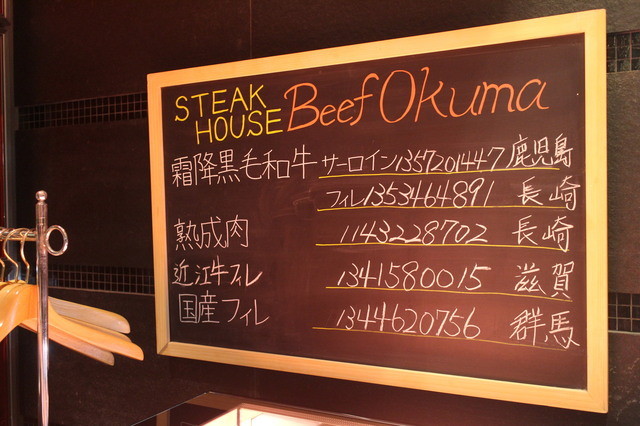 STEAK HOUSE Beef Okuma
霜降黒毛和牛 サーロイン 1357201447 鹿児島
フィレ 1353464891 長崎
熟成肉 1143228702 長崎
近江牛フィレ 1341580015 滋賀
国産フィレ 1344620756 群馬